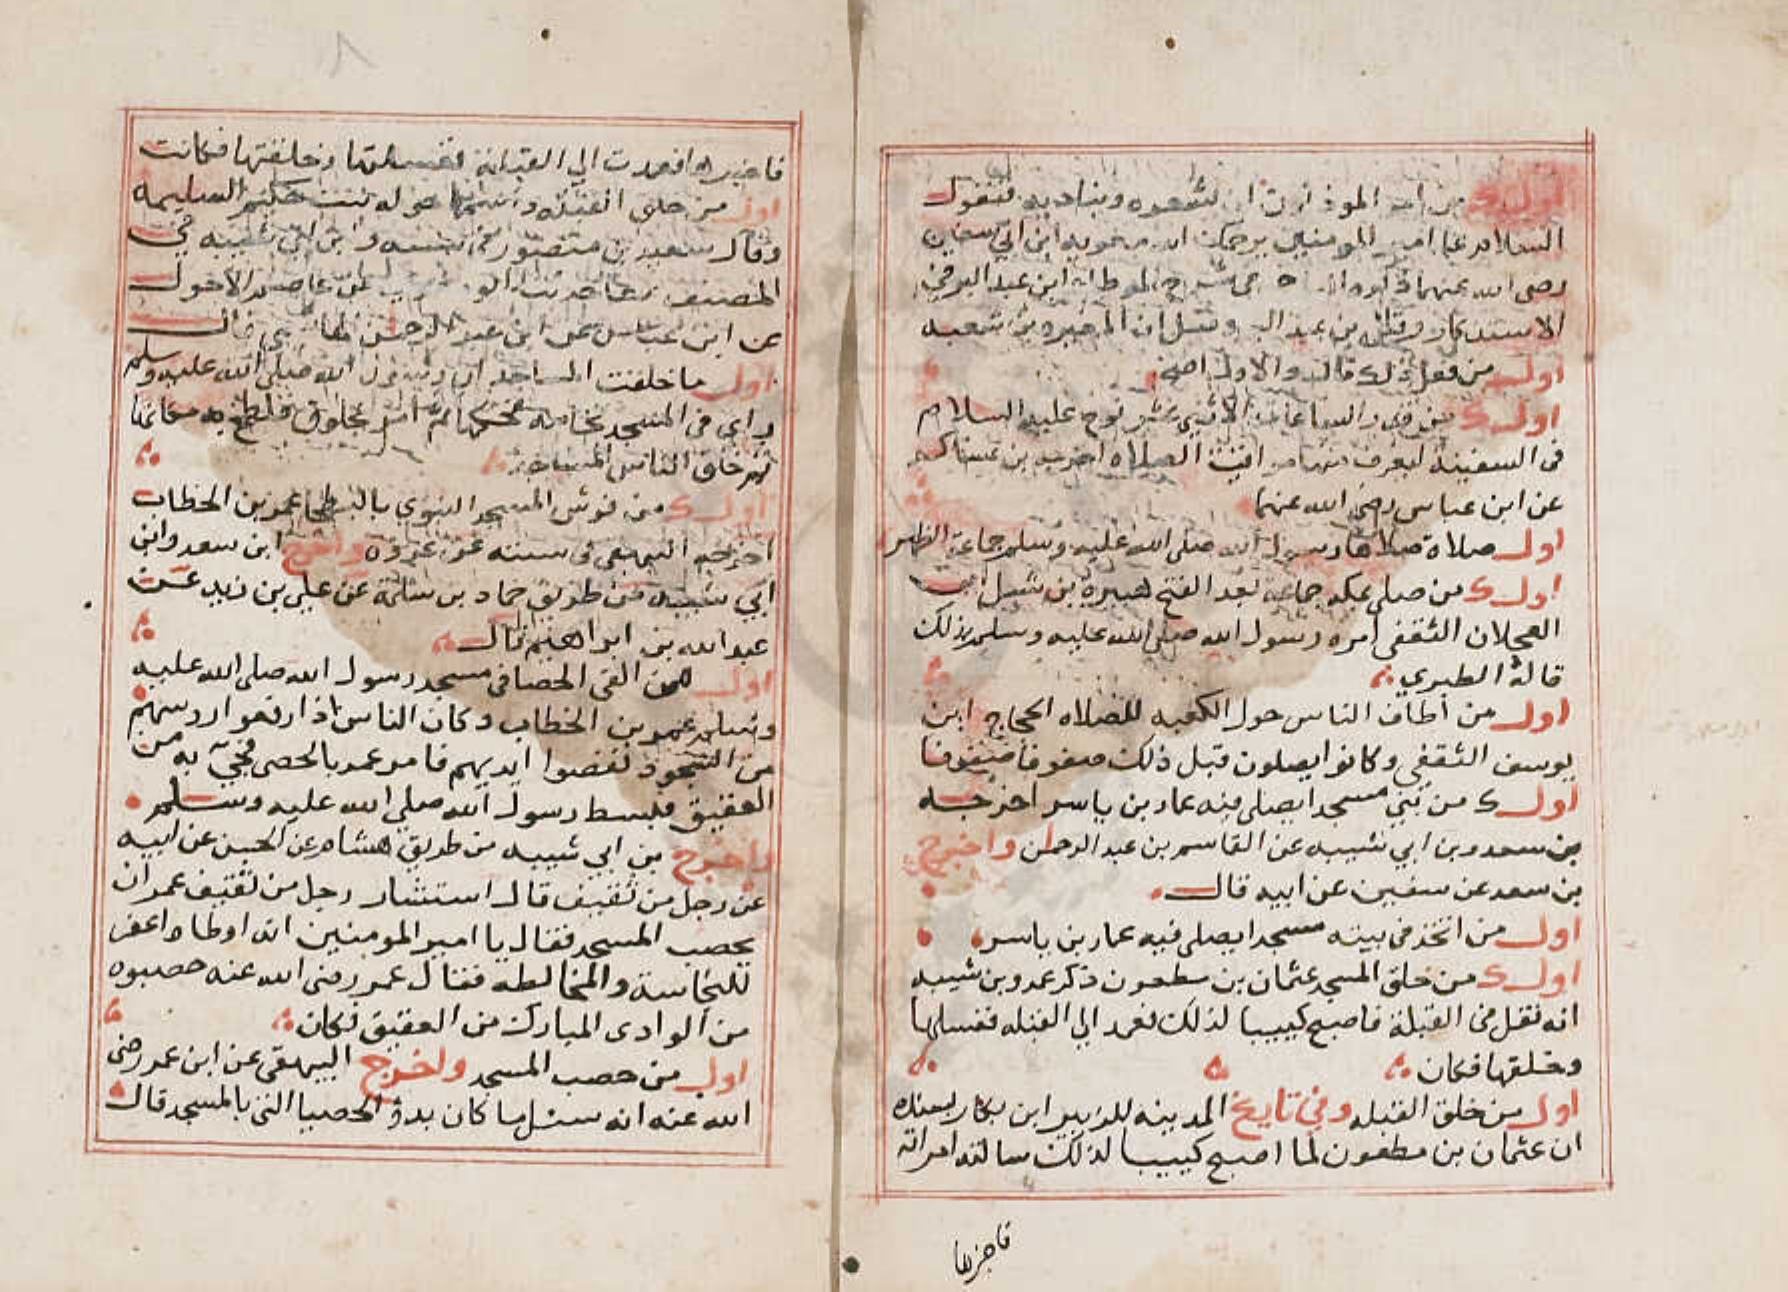 اول من امر الموذن ان يشعره ويناديه فيقول
السلام على امير المومنين يرحمك الله معويه ابن ابي سفين
رضى الله عنهما شرح الموطا ابن عبد البر في
الاستذكار بن عبد البر وقيل ان المغيره بن شعبه
اول من فعل ذلك قال والاول اصح
اول من الاثنى عشر نوح عليه السلام
فى السفينة ليعرف بها مواقيت الصلاه اخرجه بن عساكر
عن ابن عباس رضى الله عنهما
اول صلاة صلاها رسول الله صلى الله عليه وسلم جماعة الظهر
اول من صلى بمكه جماعة بعد الفتح هبيرة بن شبل ابن
العجلان الثقفى امره رسول الله صلى الله عليه وسلم بذلك
قاله الطبري
اول من أطاف الناس حول الكعبه للصلاه الحجاج ابن
يوسف الثقفى وكانوا يصلون قبل ذلك صفوفا صفوفا
اول من بنى مسجدا يصلى فيه عمار بن ياسر اخرجه
بن سعد وبن ابي شيبه عن القاسم بن عبد الرحمن واخرج
بن سعد عن سفين عن ابيه قال
اول من اتخذ فى بيته مسجدا يصلى فيه عمار بن ياسر
اول من خلق المسجد عثمان بن مظعون ذكر عمر وبن شيبه
انه تفل فى القبلة فاصبح كييبا لذلك فعمد الي القبله فغسلها
وخلقها فكان
اول من خلق القبله وفي تاريخ المدينه للزبير ابن بكار بسنده
ان عثمان بن مظعون لما اصبح كييبا لذلك سالته امراته
فاخبرها
فاخبرها فعمدت الي القبلة فغسلتها وخلقتها فكانت
اول من خلق القبله خوله بنت حكيم السليمه
وقال سعيد بن منصور فى سننه وابن ابي شيبه في
المصنف عن عاصم الاحول
عن ابن عباس عن ابن عبد الرحمن قال
اول ما خلقت المساجد ان رسول الله صلى الله عليه وسلم
راي فى المسجد نخامه فحكها ثم امر بخلوق فلطخ به مكانها
ثم خلق الناس المساجد
اول من فرش المسجد النبوي بالبطحا عمر بن الخطاب
اخرجه البيهقى فى سننه عن عروه واخرج ابن سعد وابن
ابي شيبه من طريق حماد بن سلمة عن علي بن زيد عن
عبد الله بن ابراهيم قال
اول من القى الحصا فى مسجد رسول الله صلى الله عليه
وسلم عمر بن الخطاب وكان الناس اذا رفعوا روسهم
من السجود نفضوا ايديهم فامر عمر بالحصى فجي به من
العقيق فبسط رسول الله صلي الله عليه وسلم
واخرج بن ابي شيبه من طريق هشام عن الحسن عن ابيه
عن رجل من ثقيف قال استشار رجل من ثقيف عمر ان
يحصب المسجد فقال يا امير المومنين انه اوطا واغفر
للنخاسة والمخالطه فقال عمر رضى الله عنه حصبوه
من الوادى المبارك من العقيق فكان
اول من حصب المسجد واخرج البيهقى عن ابن عمر رضى
الله عنه انه سئل ما كان بدؤ الحصبا التى بالمسجد قال